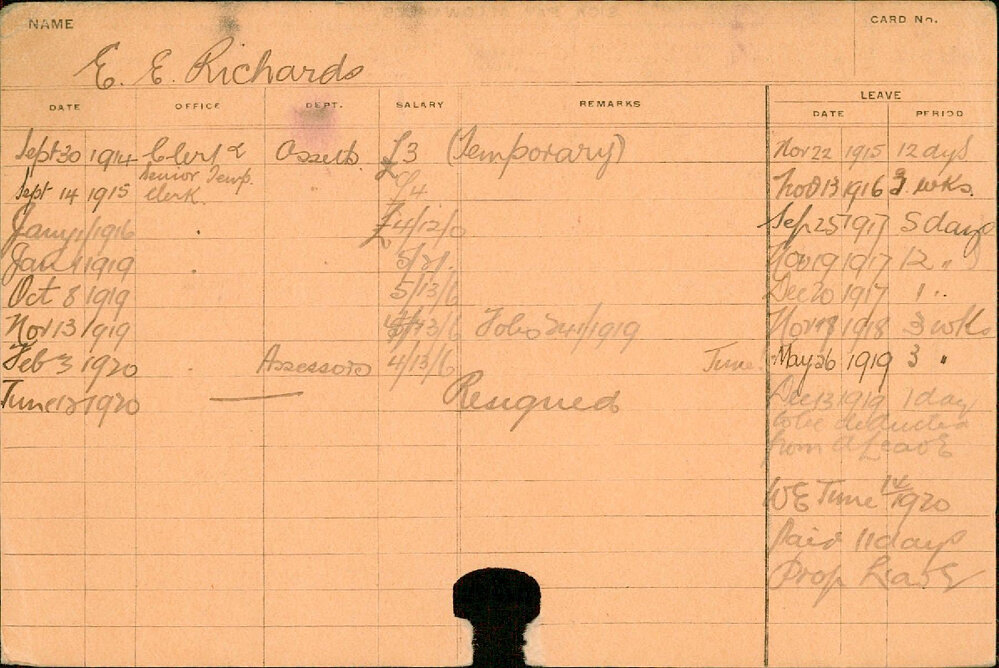 NAME
CARD No.
E. E. Richards
DATE OFFICE DEPT. SALARY REMARKS LEAVE
DATE PERIOD
Sept 30 1914 Clerk Assets £3 (Temporary) Nov 22 1915 12 days
Sept 14 1915 Senior Temp. Clerk. £4 13 1916 3 wks.
Jany 1/1916 £4/12/0 Sep 25 1917 5 days
Jan 1 1919 5/2/. Nov 19 1917 12 "
Oct 8 1919 5/13/6 Dec 20 1917 1 "
Nov 13 1919 /13/6 1919 Nov 18 1918 3 wks
Feb 3 1920 Assessors 4/13/6 June May 26 1919 3 "
June 12 1920 Resigned Dec 13 1919 1 day
to be deducted
from A Leave
WE June 14/1920
Paid 11 days
Prop Leave